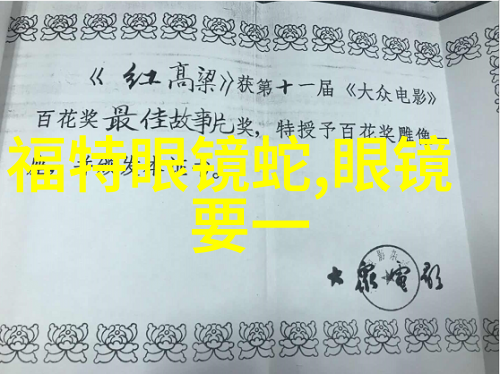 《红高粱》获第十一届《大众电影》
百花奖最佳故事片奖，特授予百花奖雕像一
福特眼镜蛇,眼镜
要一
大众电影